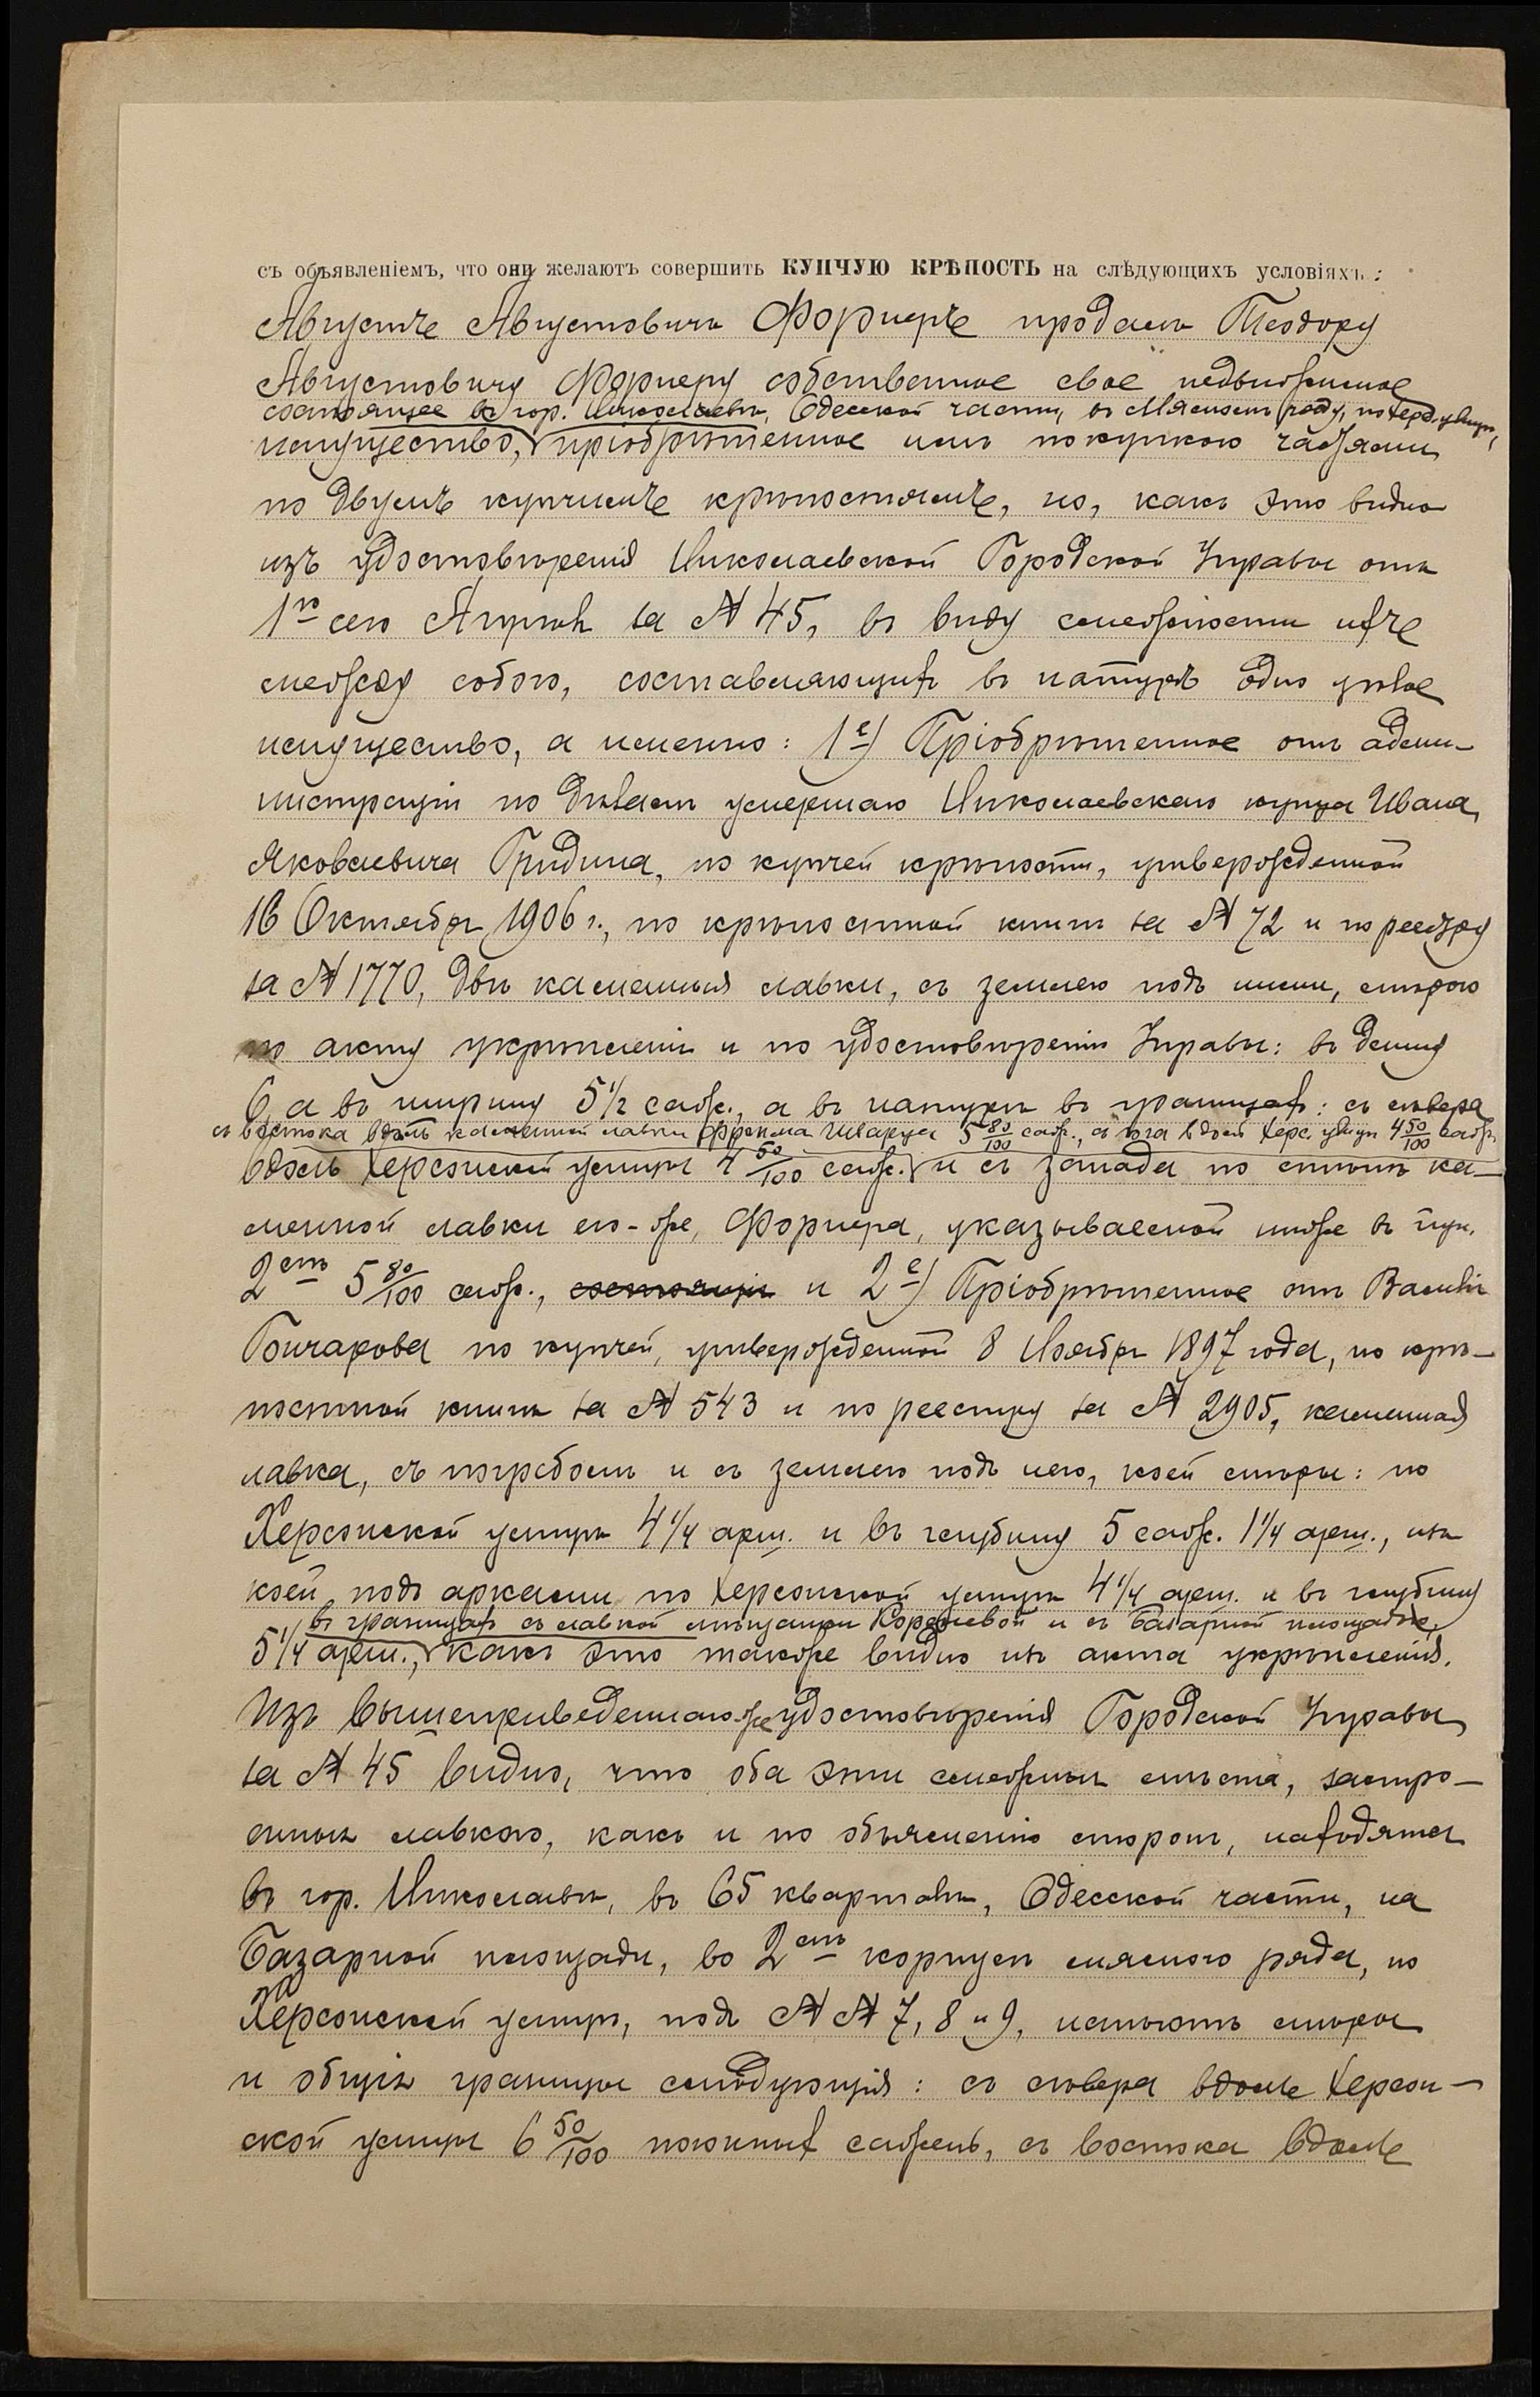 съ объявленіемъ, что они желаютъ совершить КУПЧУЮ КРѢПОСТЬ на слѣдующихъ условіяхъ:
Августъ Августовичъ Форнеръ продалъ Теодору
Августовичу Форнеру собственное свое недвижимое
состоящее въ гор. Николаевѣ, Одесской части, въ Мясномъ ряду, по Херс. улицѣ,
имущество, пріобрѣтенное имъ покупкою частями
по двумъ купчимъ крѣпостямъ, но, какъ это видно
изъ удостовѣренія Николаевской Городской Управы отъ
1го сего Апрѣля за № 45, въ виду смежности ихъ
между собою, составляющихъ въ натурѣ одно цѣлое
имущество, а именно: 1е) Пріобрѣтенное отъ адми-
нистраціи по дѣламъ умершаго Николаевскаго купца Ивана
Яковлевича Гридина, по купчей крѣпости, утвержденной
16 Октября 1906 г., по крѣпостной книгѣ за № 72 и по реестру
за № 1770, двѣ каменныя лавки, съ землею подъ ними, мѣрою
по акту укрѣпленія и по удостовѣренію Управы: въ длину
6, а въ ширину 5 1/2 саж., а въ натурѣ въ границахъ: съ сѣвера
съ востока вдоль каменной лавки Шварца 5 80/100 саж., съ юга вдоль Херс. улицы 4 50/100 саж.
вдоль Херсонской улицы 4 50/100 саж. и съ запада по стѣнѣ ка-
менной лавки его-же, Форнера, указываемой ниже въ пун.
2емъ 5 80/100 саж., состоящія и 2е) Пріобрѣтенное отъ Василія
Гончарова по купчей, утвержденной 8 Ноября 1897 года, по крѣ-
постной книгѣ за № 543 и по реестру за № 2905, каменная
лавка, съ погребомъ и съ землею подъ нею, коей мѣры: по
Херсонской улицѣ 4 1/4 арш. и въ глубину 5 саж. 1 1/4 арш., изъ
коей подъ арками по Херсонской улицѣ 4 1/4 арш. и въ глубину
въ границахъ съ лавкой мѣщанки Королевой и съ Базарной площадью,
5 1/4 арш., какъ это также видно изъ акта укрѣпленія.
Изъ вышеприведеннаго-же удостовѣренія Городской Управы
за № 45 видно, что оба эти смежныя мѣста, застро-
енныя лавкою, какъ и по объясненію сторонъ, находятся
въ гор. Николаевѣ, въ 65 кварталѣ, Одесской части, на
Базарной площади, во 2омъ корпусѣ мяснаго ряда, по
Херсонской улицѣ, подъ №№ 7, 8 и 9, имѣютъ мѣры
и общія границы слѣдующія: съ сѣвера вдоль Херсон-
ской улицы 6 50/100 погонныхъ сажень, съ востока вдоль